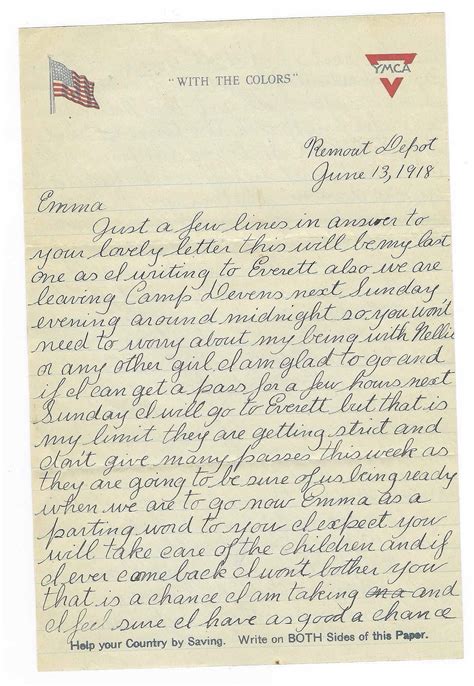 "WITH THE COLORS"
YMCA
Remout Depot
June 13, 1918
Emma
Just a few lines in answer to
your lovely letter this will be my last
one as I writing to Everett also we are
leaving Camp Devens next Sunday
evening around midnight so you won't
need to worry about my being with Nellie
or any other girl. I am glad to go and
if I can get a pass for a few hours next
Sunday I will go to Everett but that is
my limit they are getting strict and
don't give many passes this week as
they are going to be sure of us being ready
when we are to go now Emma as a
parting word to you I expect you
will take care of the children and if
I ever come back I won't bother you
that is a chance I am taking and
I feel sure I have as good a chance
Help your Country by Saving. Write on BOTH Sides of this Paper.